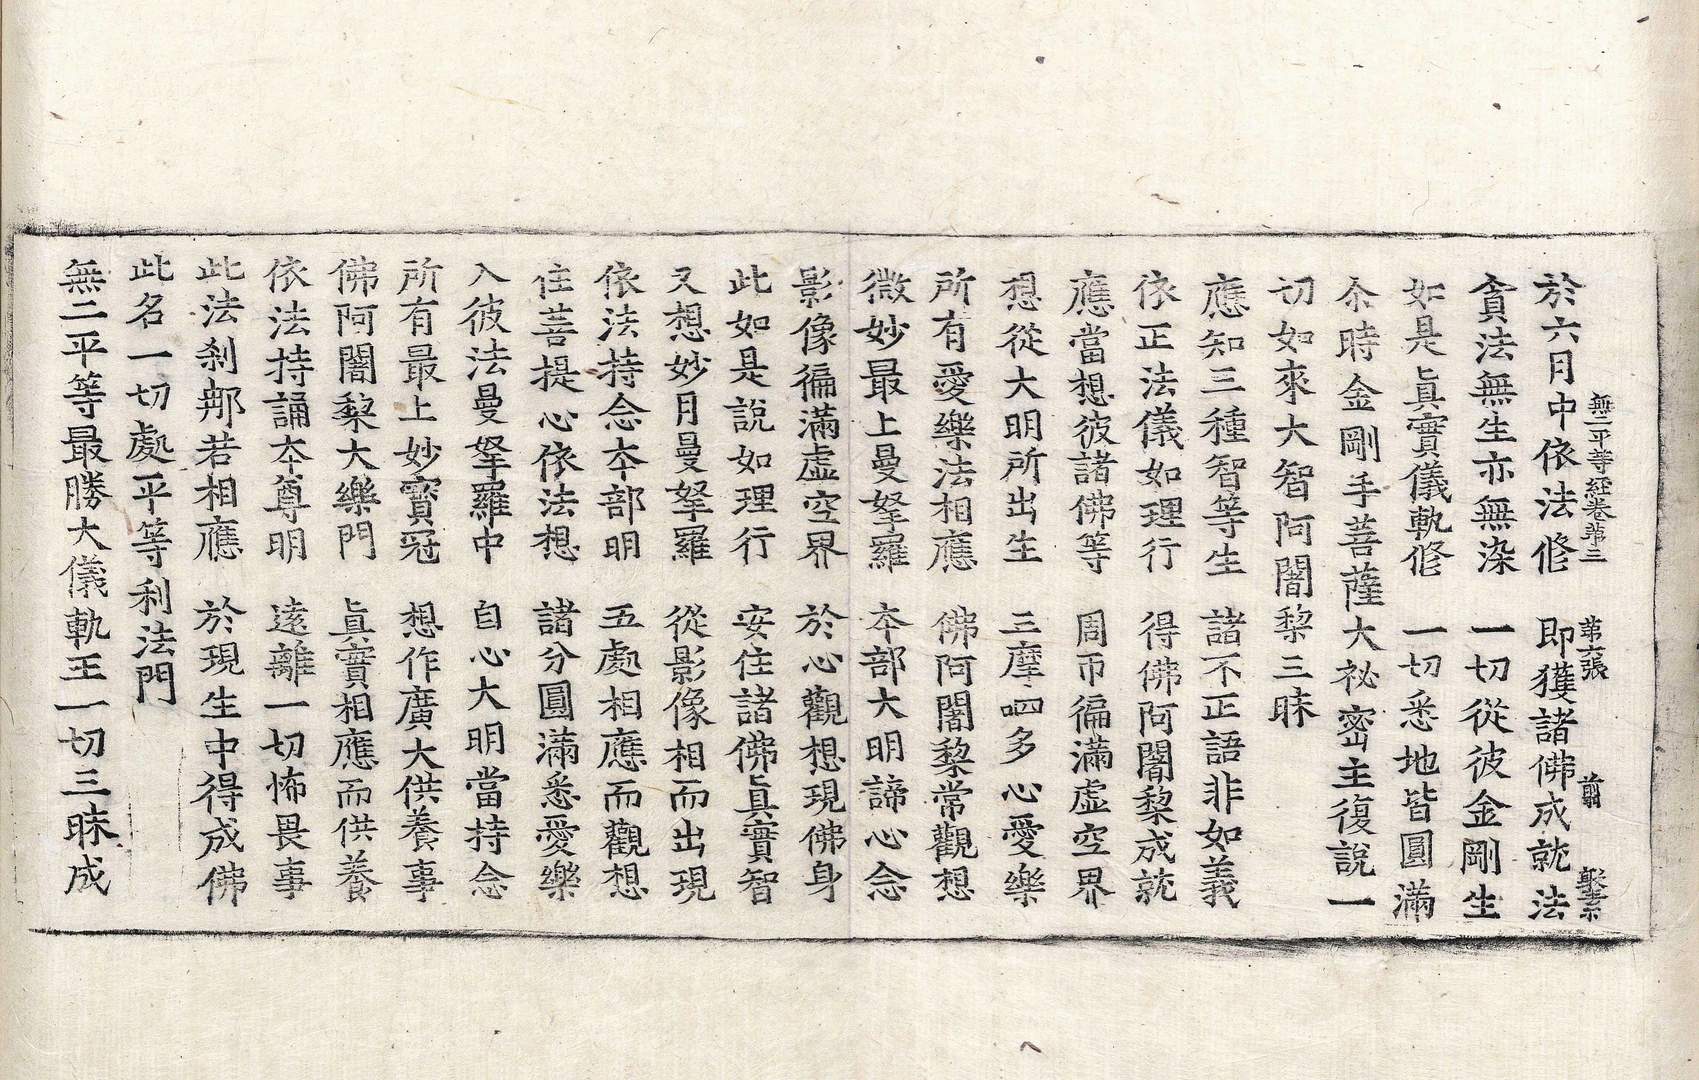 無二平等經卷苐三 第六張 翦
於六月中依法修 即獲諸佛成就法
貪法無生亦無染 一切從彼金剛生
如是眞實儀軌修 一切悉地皆圓滿
尒時金剛手菩薩大祕密主復說一
切如來大智阿闍黎三昧
應知三種智等生 諸不正語非如義
依正法儀如理行 得佛阿闍黎成就
應當想彼諸佛等 周帀徧滿虛空界
想從大明所出生 三摩呬多心愛樂
所有愛樂法相應 佛阿闍黎常觀想
微妙最上曼拏羅 本部大明諦心念
影像徧滿虛空界 於心觀想現佛身
此如是說如理行 安住諸佛眞實智
又想妙月曼拏羅 從影像相而出現
依法持念本部明 五處相應而觀想
住菩提心依法想 諸分圓滿悉愛樂
入彼法曼拏羅中 自心大明當持念
所有最上妙寳冠 想作廣大供養事
佛阿闍黎大樂門 眞實相應而供養
依法持誦本尊明 遠離一切怖畏事
此法刹那若相應 於現生中得成佛
此名一切處平等利法門
無二平等最勝大儀軌王一切三昧成